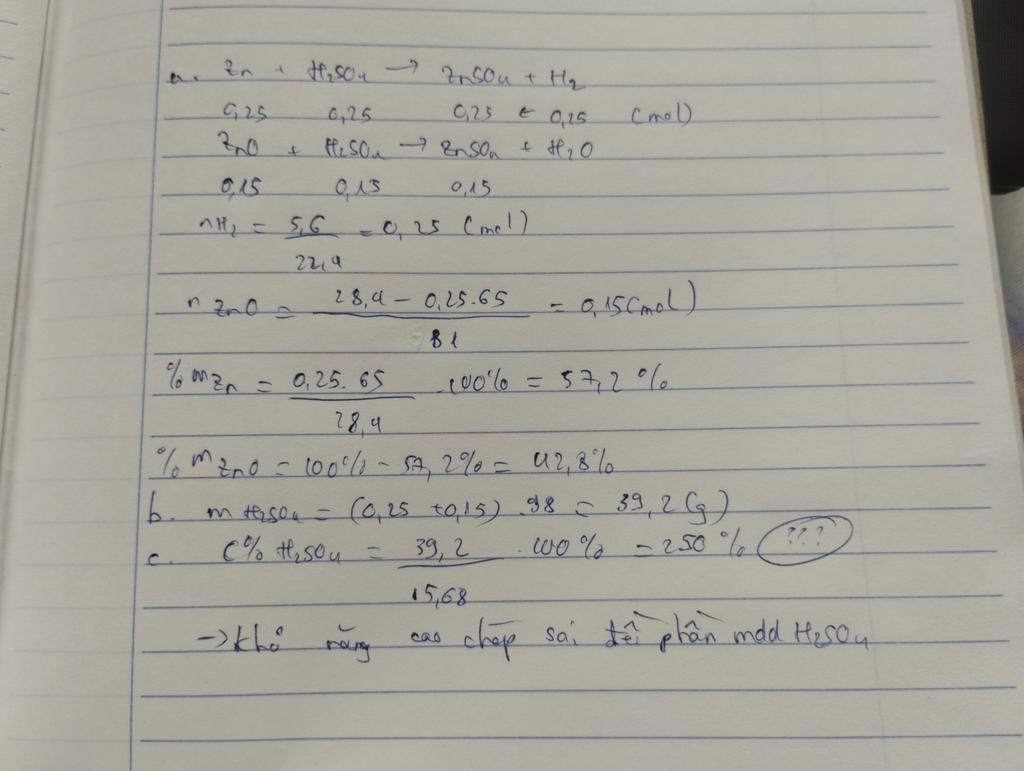 a. Zn + H2SO4 → ZnSO4 + H2
0,25 0,25 0,25 ← 0,25 (mol)
ZnO + H2SO4 → ZnSO4 + H2O
0,15 0,15 0,15
nH2 = 5,6/22,4 = 0,25 (mol)
nZnO = (28,4 - 0,25.65)/81 = 0,15 (mol)
%mZn = 0,25.65/28,4 .100% = 57,2%
%mZnO = 100% - 57,2% = 42,8%
b. mH2SO4 = (0,25 + 0,15) .98 = 39,2 (g)
c. C% H2SO4 = 39,2/15,68 .100% = 250% ???
→ khả năng cao chép sai đề phần mdd H2SO4